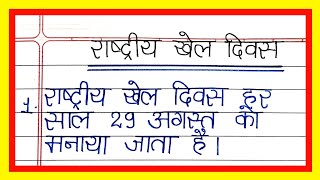 राष्ट्रीय खेल दिवस
1. राष्ट्रीय खेल दिवस हर
साल 29 अगस्त को
मनाया जाता है।